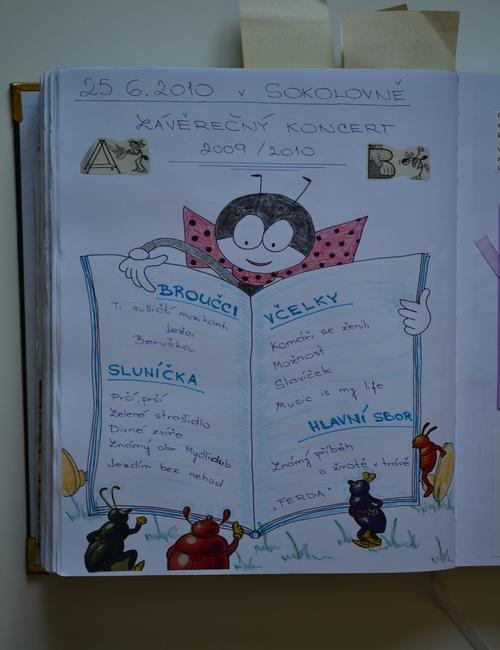 25.6.2010 v SOKOLOVNĚ
ZÁVĚREČNÝ KONCERT
2009/2010
A
B
BROUČCI
Ti sušičtí muzikanti
Ježci
Beruška
SLUNÍČKA
Prší, prší
Zelené strašidlo
Divné zvíře
Známý obr Mydlidub
Jezdím bez nehod
VČELKY
Komáři se ženili
Možnost
Slavíček
Music is my life
HLAVNÍ SBOR
Známý příběh
o životě v trávě
„FERDA"